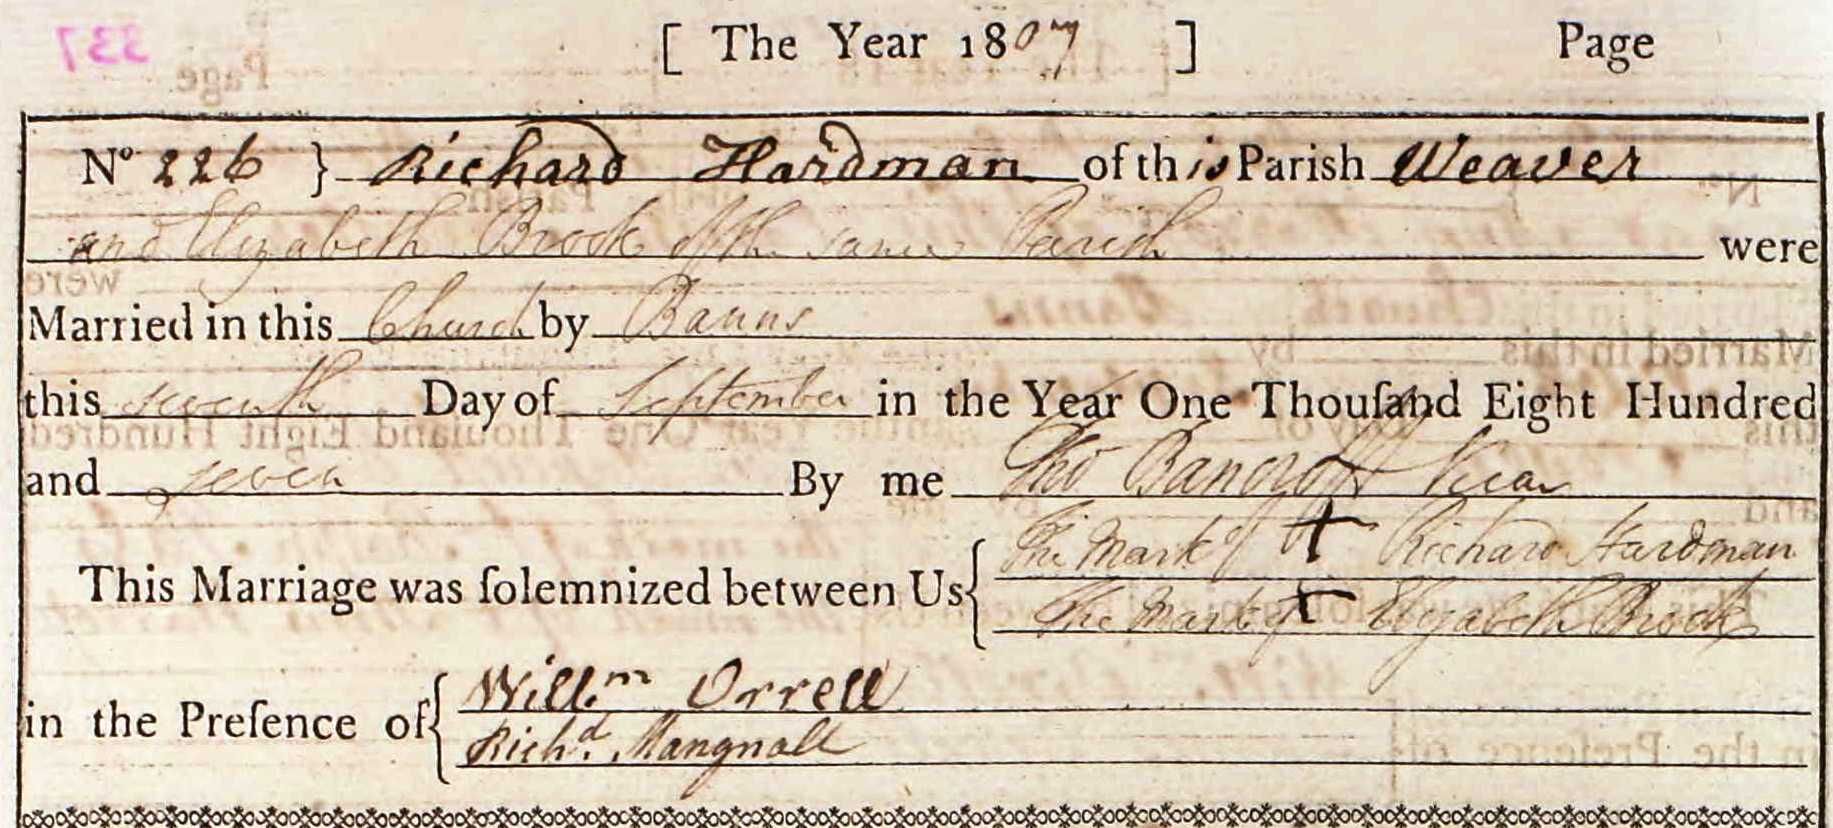 [ The Year 1807 ] Page
No 226 } Richard Hardman of this Parish Weaver
and Elizabeth Brook of the same Parish were
Married in this Church by Banns
this seventh Day of September in the Year One Thouſand Eight Hundred
and seven By me Tho Bancroft Vicar
The Mark of + Richard Hardman
This Marriage was ſolemnized between Us {
The Mark of + Elizabeth Brook
Willm Orrell
in the Preſence of {
Richd. Mangnall